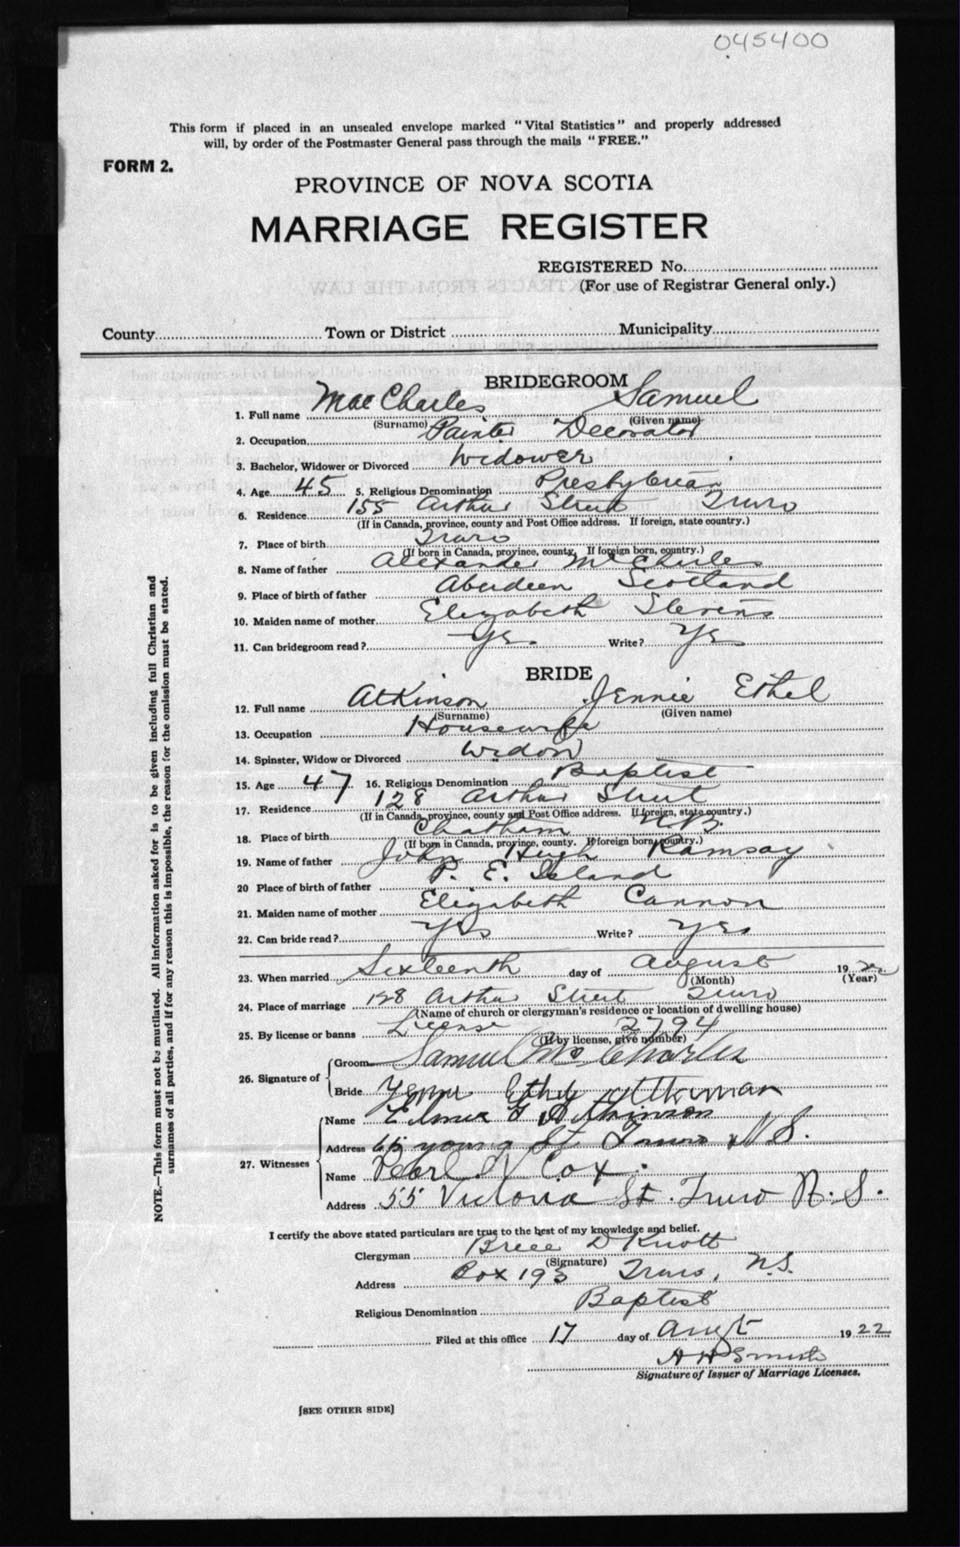 045400
This form if placed in an unsealed envelope marked "Vital Statistics" and properly addressed
will, by order of the Postmaster General pass through the mails "FREE."
FORM 2.
PROVINCE OF NOVA SCOTIA
MARRIAGE REGISTER
REGISTERED No.
(For use of Registrar General only.)
County Town or District Municipality
BRIDEGROOM
1. Full name MacCharles Samuel
(Surname) (Given name)
2. Occupation Painter Decorator
3. Bachelor, Widower or Divorced Widower
4. Age 45 5. Religious Denomination Presbyterian
6. Residence 155 Arthur Street Truro
(If in Canada, province, county and Post Office address. If foreign, state country.)
7. Place of birth Truro
(If born in Canada, province, county. If foreign born, country.)
8. Name of father Alexander McCharles
9. Place of birth of father Aberdeen Scotland
10. Maiden name of mother Elizabeth Stevens
11. Can bridegroom read? Yes Write? Yes
BRIDE
12. Full name Atkinson Jennie Ethel
(Surname) (Given name)
13. Occupation Housewife
14. Spinster, Widow or Divorced Widow
15. Age 47 16. Religious Denomination Baptist
17. Residence 128 Arthur Street
(If in Canada, province, county and Post Office address. If foreign, state country.)
18. Place of birth Chatham N.B.
(If born in Canada, province, county. If foreign born, country.)
19. Name of father John Hugh Ramsay
20 Place of birth of father P. E. Island
21. Maiden name of mother Elizabeth Cannon
22. Can bride read? Yes Write? Yes
23. When married Sixteenth day of August 1922
(Month) (Year)
24. Place of marriage 128 Arthur Street Truro
(Name of church or clergyman's residence or location of dwelling house)
25. By license or banns License 2794
(If by license, give number)
26. Signature of Groom Samuel McCharles
Bride Ethel
27. Witnesses Name Elmer F Atkinson
Address young St. Truro N.S.
Name Pearl V Cox.
Address 55 Victoria St. Truro N.S.
I certify the above stated particulars are true to the best of my knowledge and belief.
Clergyman D Knott
(Signature)
Address Box 193 Truro, N.S.
Religious Denomination Baptist
Filed at this office 17 day of Augt 1922
A H Smith
Signature of Issuer of Marriage Licenses.
[SEE OTHER SIDE]
NOTE.—This form must not be mutilated. All information asked for is to be given including full Christian and
surnames of all parties, and if for any reason this is impossible, the reason for the omission must be stated.